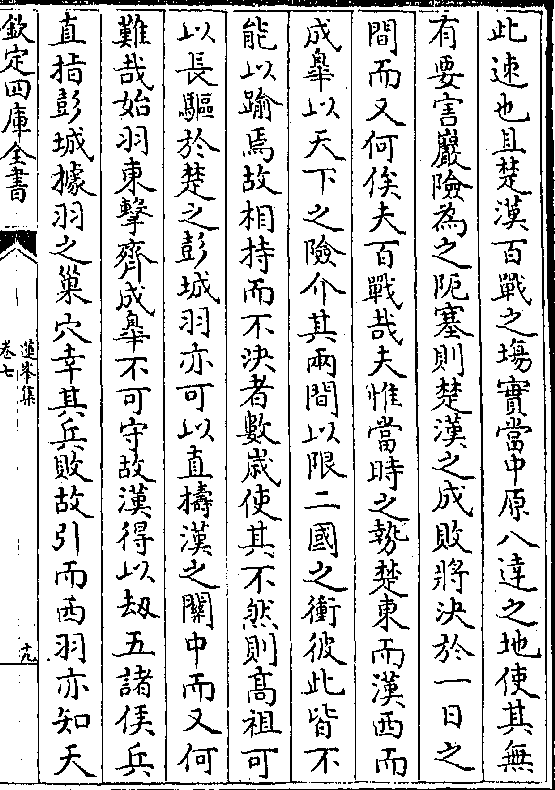 此速也且楚漢百戰之塲實當中原八達之地使其無
有要害巖險為之阨塞則楚漢之成敗將決於一日之
間而又何俟夫百戰哉夫惟當時之勢楚東而漢西而
成臯以天下之險介其兩間以限二國之衝彼此皆不
能以踰焉故相持而不決者數歲使其不然則髙祖可
以長驅於楚之彭城羽亦可以直擣漢之關中而又何
難哉始羽東擊齊成臯不可守故漢得以刼五諸侯兵
直指彭城據羽之巢穴幸其兵敗故引而西羽亦知天
欽定四庫全書
蓮峯集
卷七
十九